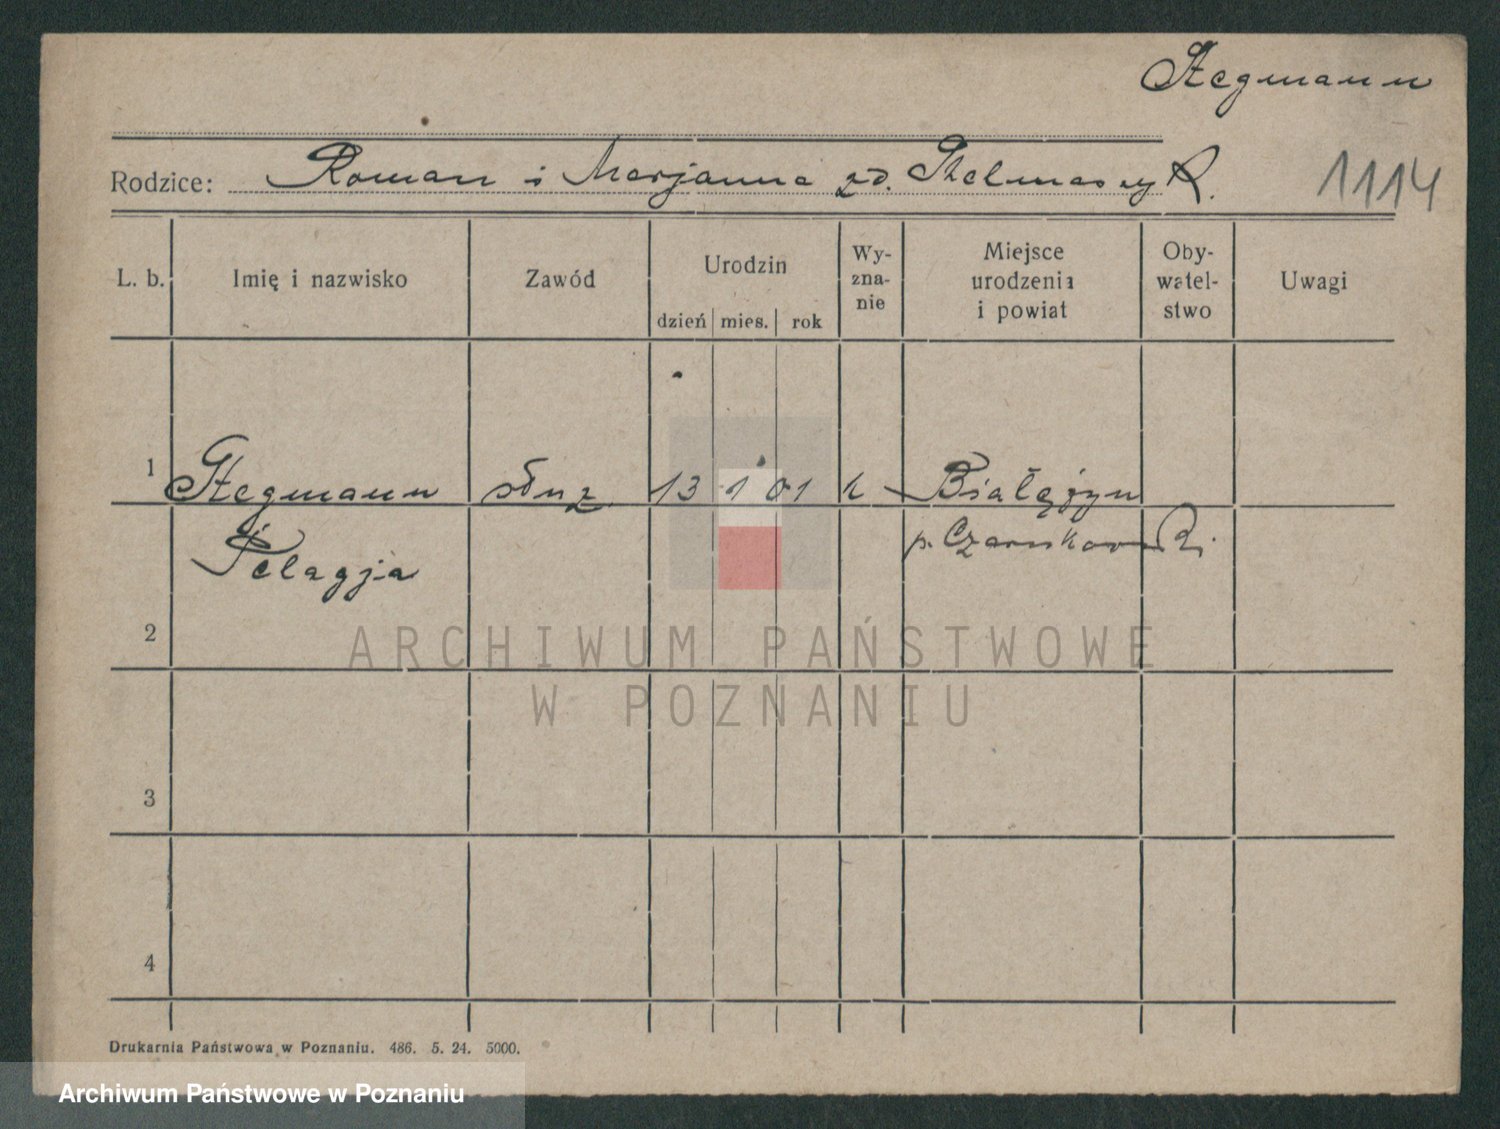 Stegmann
Rodzice: Roman i Marjanna zd. Stelmaszyk.
1114
L. b. Imię i nazwisko Zawód Urodzin dzień mies. rok Wy-zna-nie Miejsce urodzenia i powiat Oby-watel-stwo Uwagi
1 Stegmann służ. 13 1 01 k Białężyn
Pelagja p. Czarnków
2
3
4
Drukarnia Państwowa w Poznaniu. 486. 5. 24. 5000.
ARCHIWUM PAŃSTWOWE
W POZNANIU
Archiwum Państwowe w Poznaniu